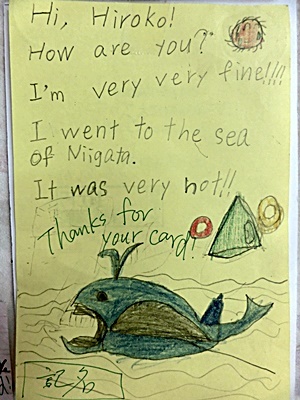 Hi, Hiroko!
How are you?
I'm very very fine!!!!
I went to the sea
of Niigata.
It was very hot!!
Thanks for
your card!
記名